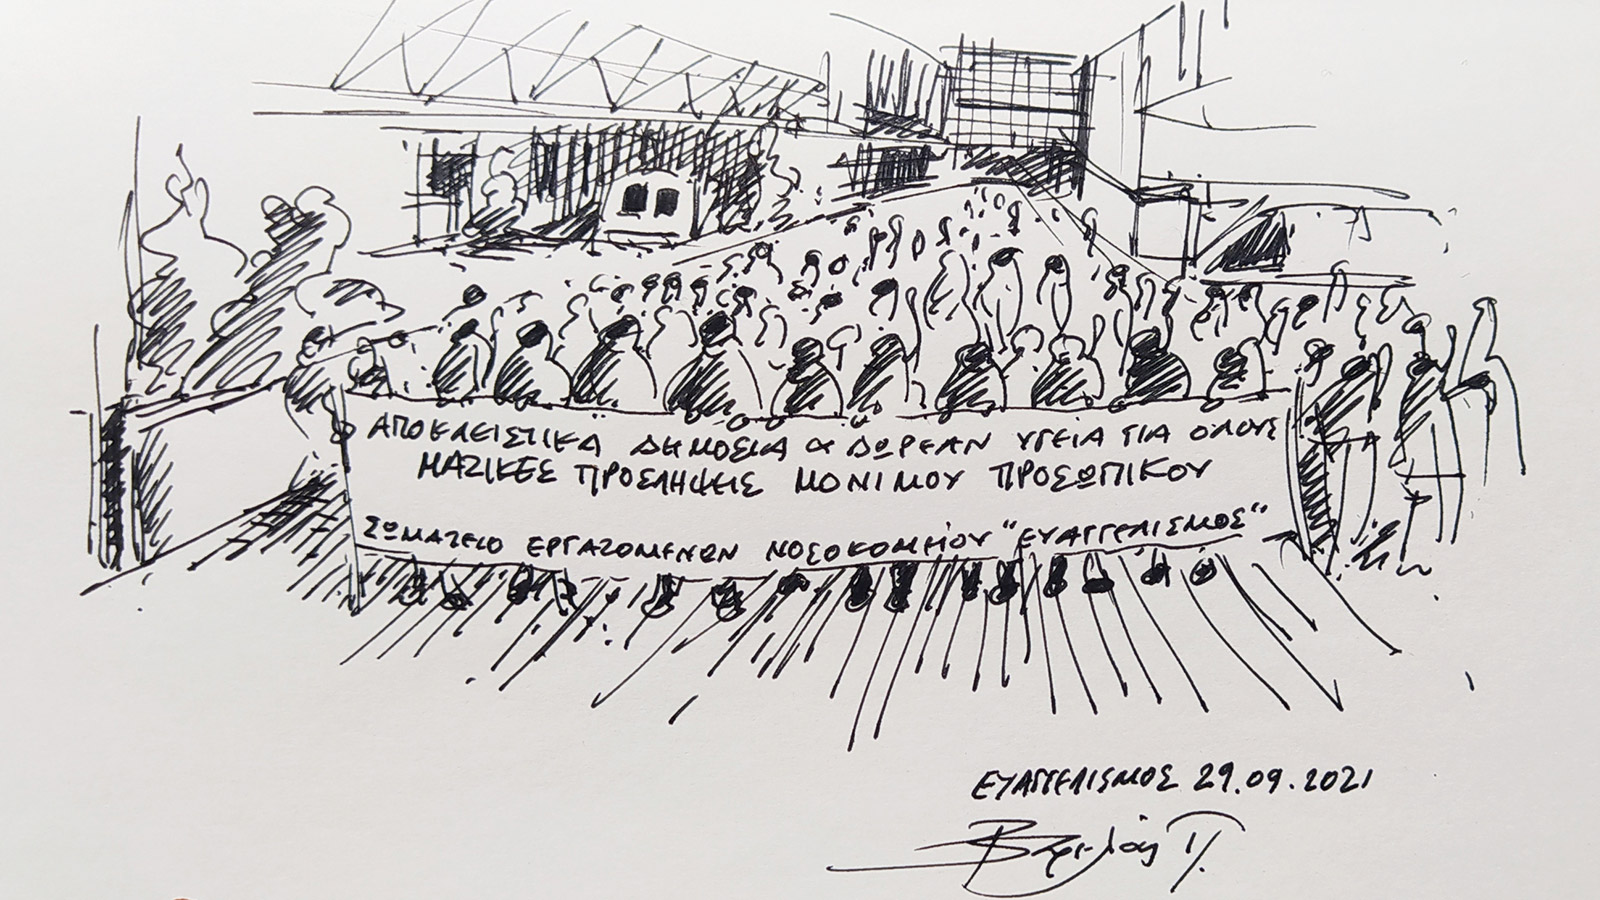 ΑΠΟΚΛΕΙΣΤΙΚΑ ΔΗΜΟΣΙΑ & ΔΩΡΕΑΝ ΥΓΕΙΑ ΓΙΑ ΟΛΟΥΣ
ΜΑΖΙΚΕΣ ΠΡΟΣΛΗΨΕΙΣ ΜΟΝΙΜΟΥ ΠΡΟΣΩΠΙΚΟΥ
ΣΩΜΑΤΕΙΟ ΕΡΓΑΖΟΜΕΝΩΝ ΝΟΣΟΚΟΜΕΙΟΥ "ΕΥΑΓΓΕΛΙΣΜΟΣ"
ΕΥΑΓΓΕΛΙΣΜΟΣ 29.09.2021